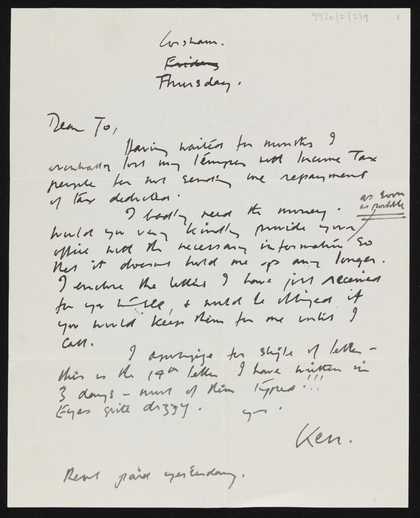 Corsham.
Friday
Thursday.
Dear To,
Having waited for months I
eventually lost my temper with Income Tax
people for not sending me repayment
of tax deducted.
I badly need the money.
as soon
as possible
Would you very kindly provide your
office with the necessary information so
that it doesn't hold me up any longer.
I enclose the letters I have just received
for you to see, & would be obliged if
you would keep them for me until I
call.
I apologize for style of letter -
this is the 14th letter I have written in
3 days - most of them typed!!!
Eyes quite dizzy. yrs.
Ken.
Rent paid yesterday.